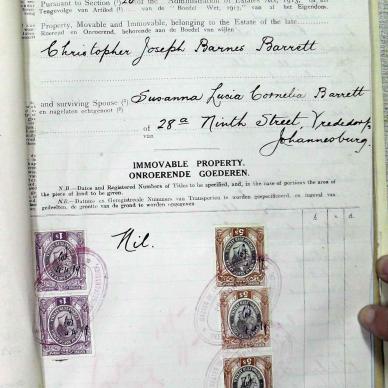 Pursuant to Section (¹) 26 of the "Administration of Estates Act, 1913,"
Tengevolge van Artikel (¹) van de "Boedel Wet, 1913," van al het Eigendom,
Property, Movable and Immovable, belonging to the Estate of the late
Roerend en Onroerend, behorende aan de Boedel van wijlen
Christopher Joseph Barnes Barrett
and surviving Spouse (²) Susanna Lucia Cornelia Barrett
en nagelaten echtgenoot (²)
of 28a Ninth Street, Vrededorp,
van
Johannesburg.
IMMOVABLE PROPERTY.
ONROERENDE GOEDEREN.
N.B.—Dates and Registered Numbers of Titles to be specified, and, in the case of portions the area of
the piece of land to be given.
N.B.—Datums en Geregistreerde Nummers van Transporten te worden gespecificeerd, en ingeval van
gedeelten, de grootte van de grond te worden opgegeven
£ s. d.
Nil.
£1 £1
5s 5s
£1 £1
5s 5s